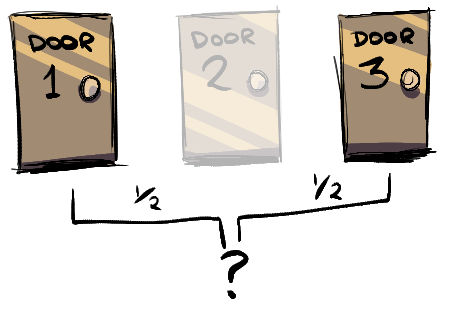 DOOR
1
DOOR
2
DOOR
3
1/2
1/2
?